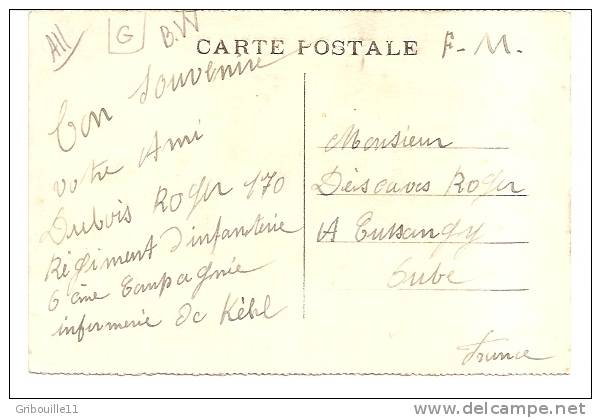 All
G
B.W
CARTE POSTALE
F-M.
Bon Souvenire
votre Ami
Dubois Roger 170
Régiment d'infanterie
6 ème Compagnie
infirmerie de Kehl
Monsieur
Roger
A Cussangy
Aube
France
© Gribouille11
delcampe.net